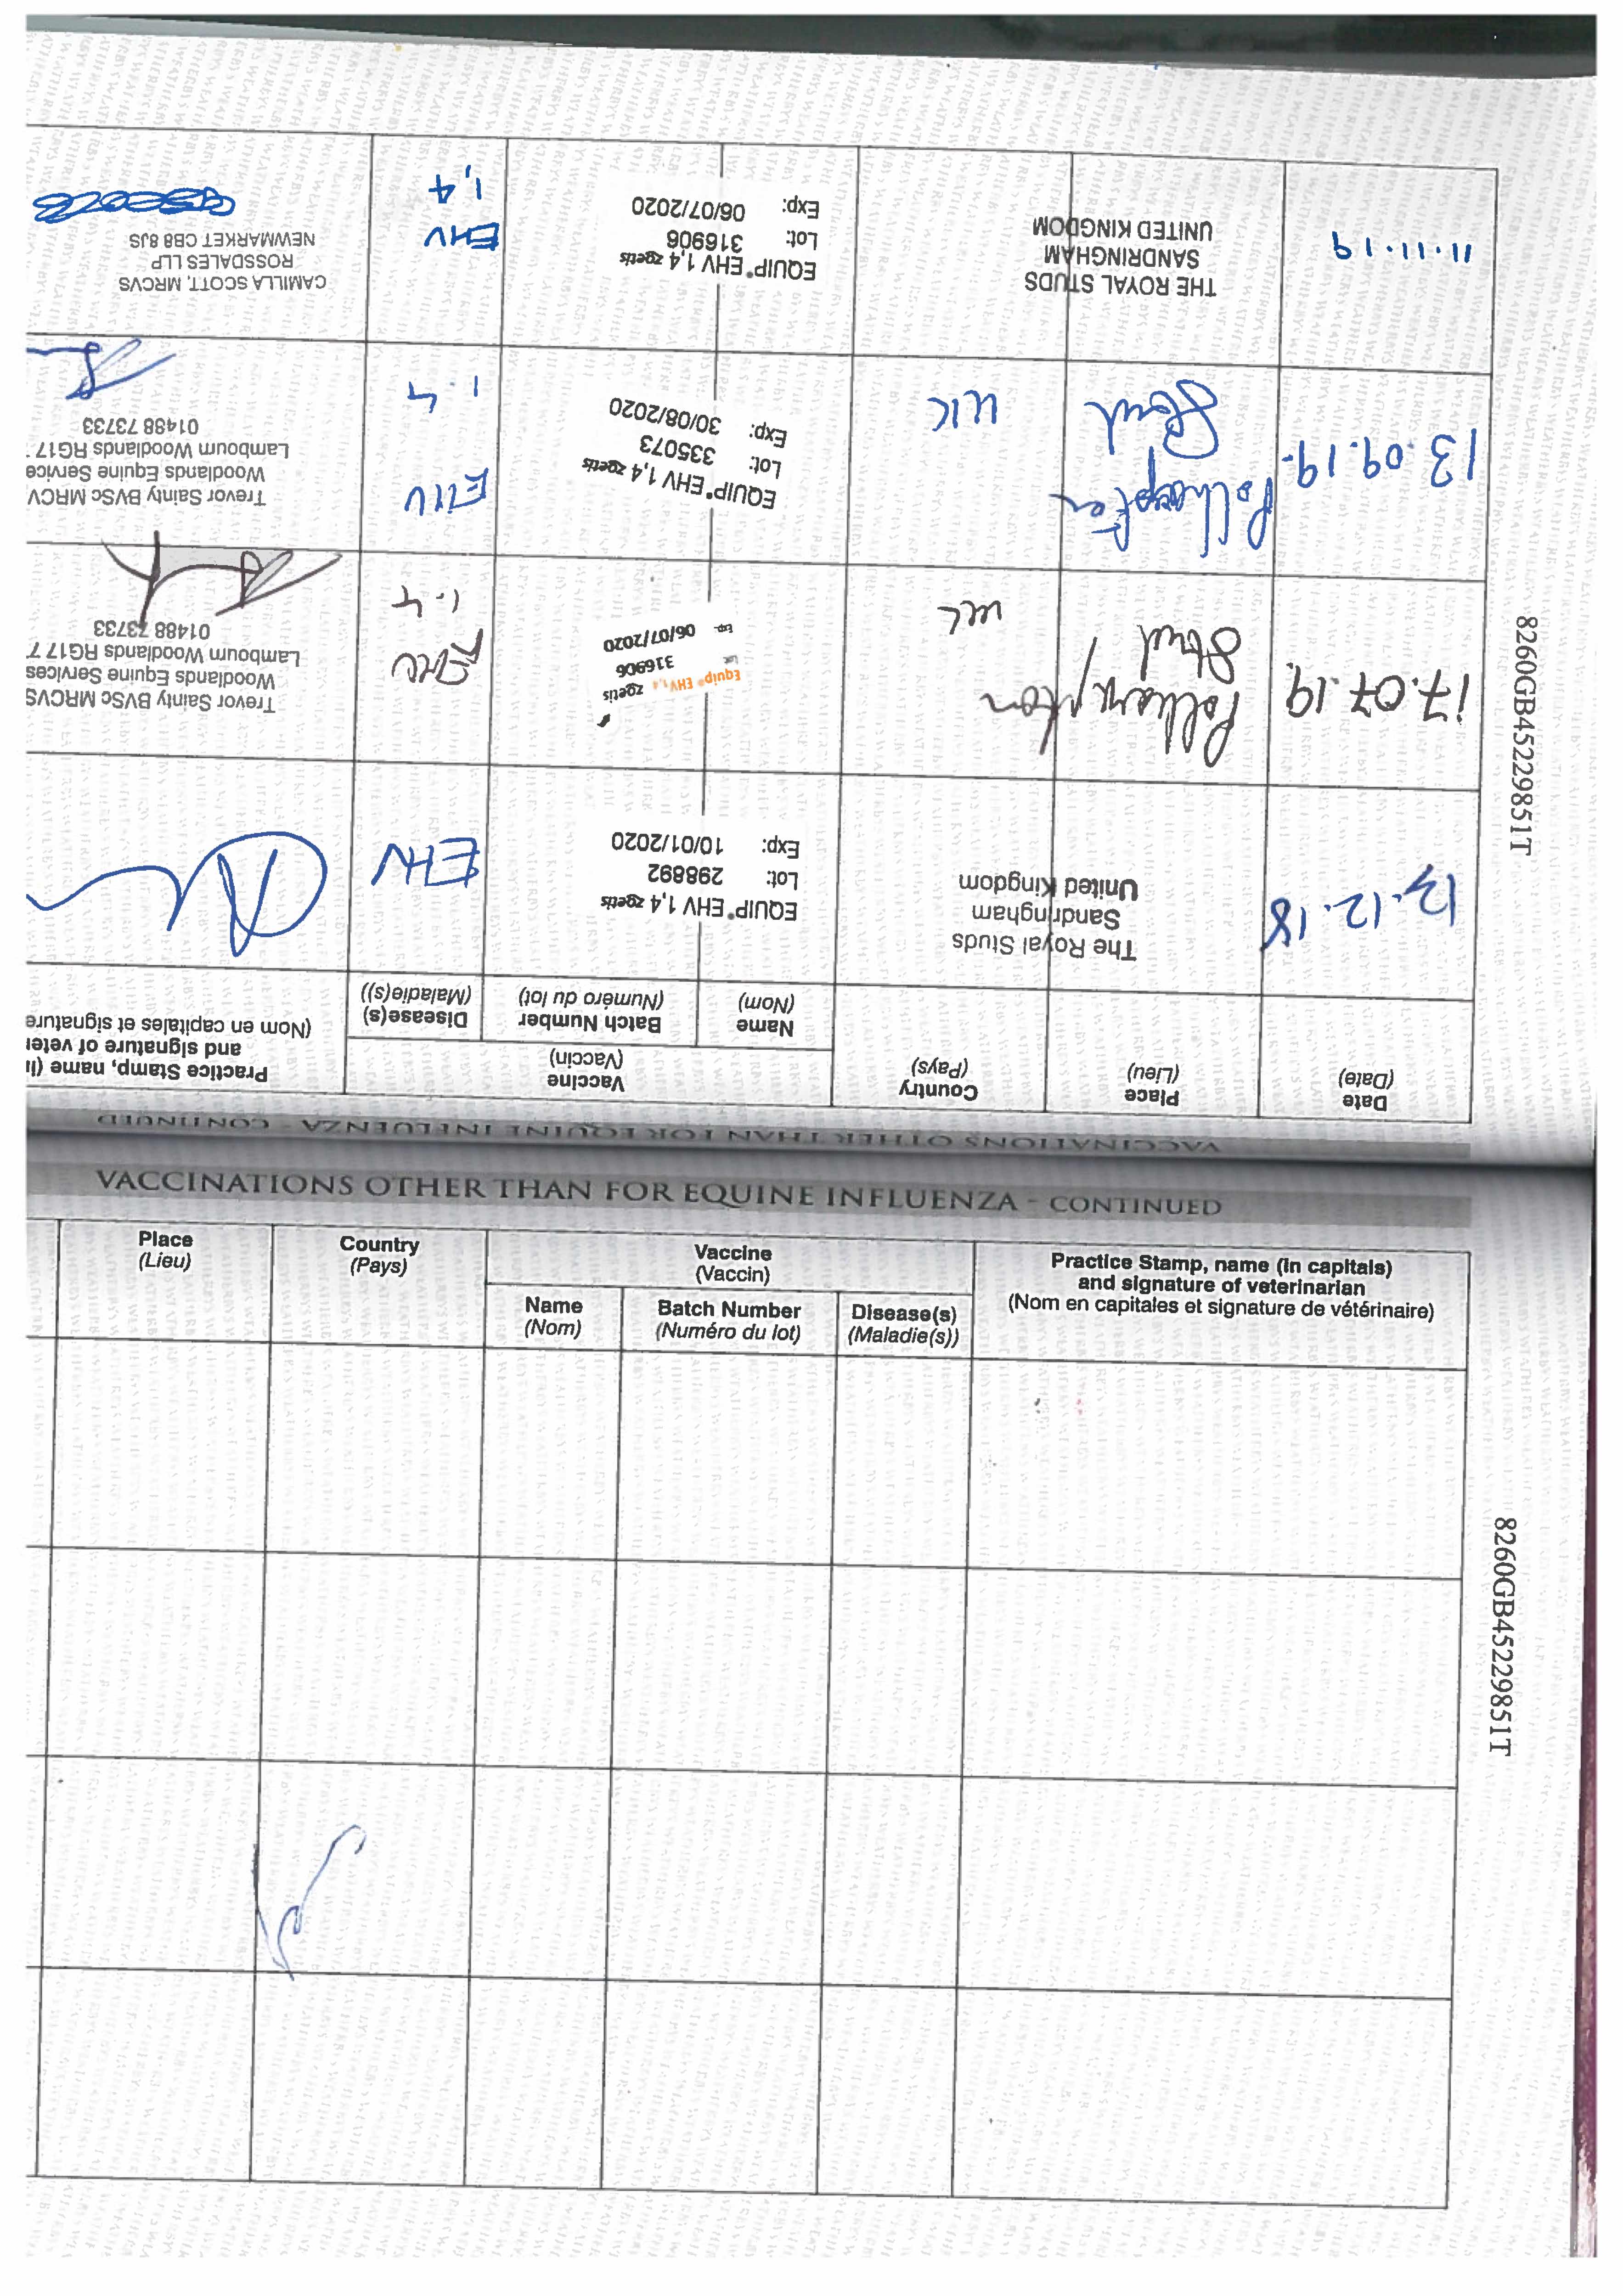 VACCINATIONS OTHER THAN FOR EQUINE INFLUENZA - CONTINUED
Date
(Date)
Place
(Lieu)
Country
(Pays)
Vaccine
(Vaccin)
Name
(Nom)
Batch Number
(Numéro du lot)
Disease(s)
(Maladie(s))
Practice Stamp, name (i
and signature of veter
(Nom en capitales et signature
13.12.18
The Royal Studs
Sandringham
United Kingdom
EQUIP® EHV 1,4 zoetis
Lot: 298892
Exp: 10/01/2020
EHV
17.07.19
Polhampton
Stud
UK
Equip® EHV 1,4 zoetis
Lot: 316906
Exp: 06/07/2020
EHV
1.4
Trevor Sainty BVSc MRCVS
Woodlands Equine Services
Lambourn Woodlands RG17 7
01488 73733
13.09.19.
Polhampton
Stud
UK
EQUIP® EHV 1,4 zoetis
Lot: 335073
Exp: 30/08/2020
EHV
1.4
Trevor Sainty BVSc MRCV
Woodlands Equine Service
Lambourn Woodlands RG17
01488 73733
11.11.19
THE ROYAL STUDS
SANDRINGHAM
UNITED KINGDOM
EQUIP® EHV 1,4 zoetis
Lot: 316906
Exp: 06/07/2020
EHV
1,4
CAMILLA SCOTT, MRCVS
ROSSDALES LLP
NEWMARKET CB8 8JS
8260GB45229851T
VACCINATIONS OTHER THAN FOR EQUINE INFLUENZA - CONTINUED
Place
(Lieu)
Country
(Pays)
Vaccine
(Vaccin)
Name
(Nom)
Batch Number
(Numéro du lot)
Disease(s)
(Maladie(s))
Practice Stamp, name (in capitals)
and signature of veterinarian
(Nom en capitales et signature de vétérinaire)
8260GB45229851T